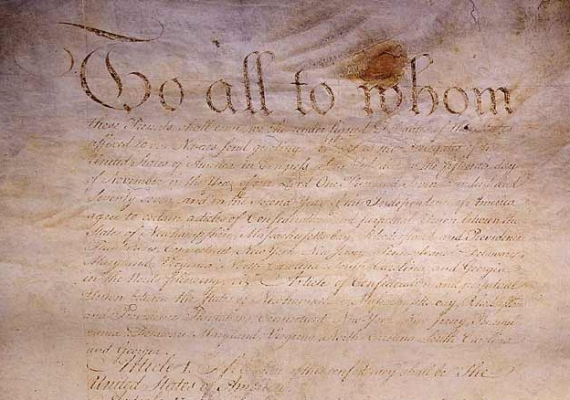 To all to whom
these Presents shall come, we the under signed Delegates of the States
affixed to our Names send greeting. Whereas the Delegates of the
United States of America in Congress assembled did on the fifteenth day
of November in the Year of our Lord One Thousand Seven Hundred and
Seventy seven, and in the Second Year of the Independence of America
agree to certain articles of Confederation and perpetual Union between the
States of Newhampshire, Massachusetts-bay, Rhodeisland and Providence
Plantations, Connecticut, New York, New Jersey, Pennsylvania, Delaware,
Maryland, Virginia, North-Carolina, South-Carolina and Georgia
in the Words following, viz. Articles of Confederation and perpetual
Union between the States of Newhampshire, Massachusetts-bay, Rhodeisland
and Providence Plantations, Connecticut, New-York, New-Jersey, Pennsyl
vania, Delaware, Maryland, Virginia, North-Carolina, South-Carolina
and Georgia.
Article I. The Stile of this confederacy shall be "The
United States of America."